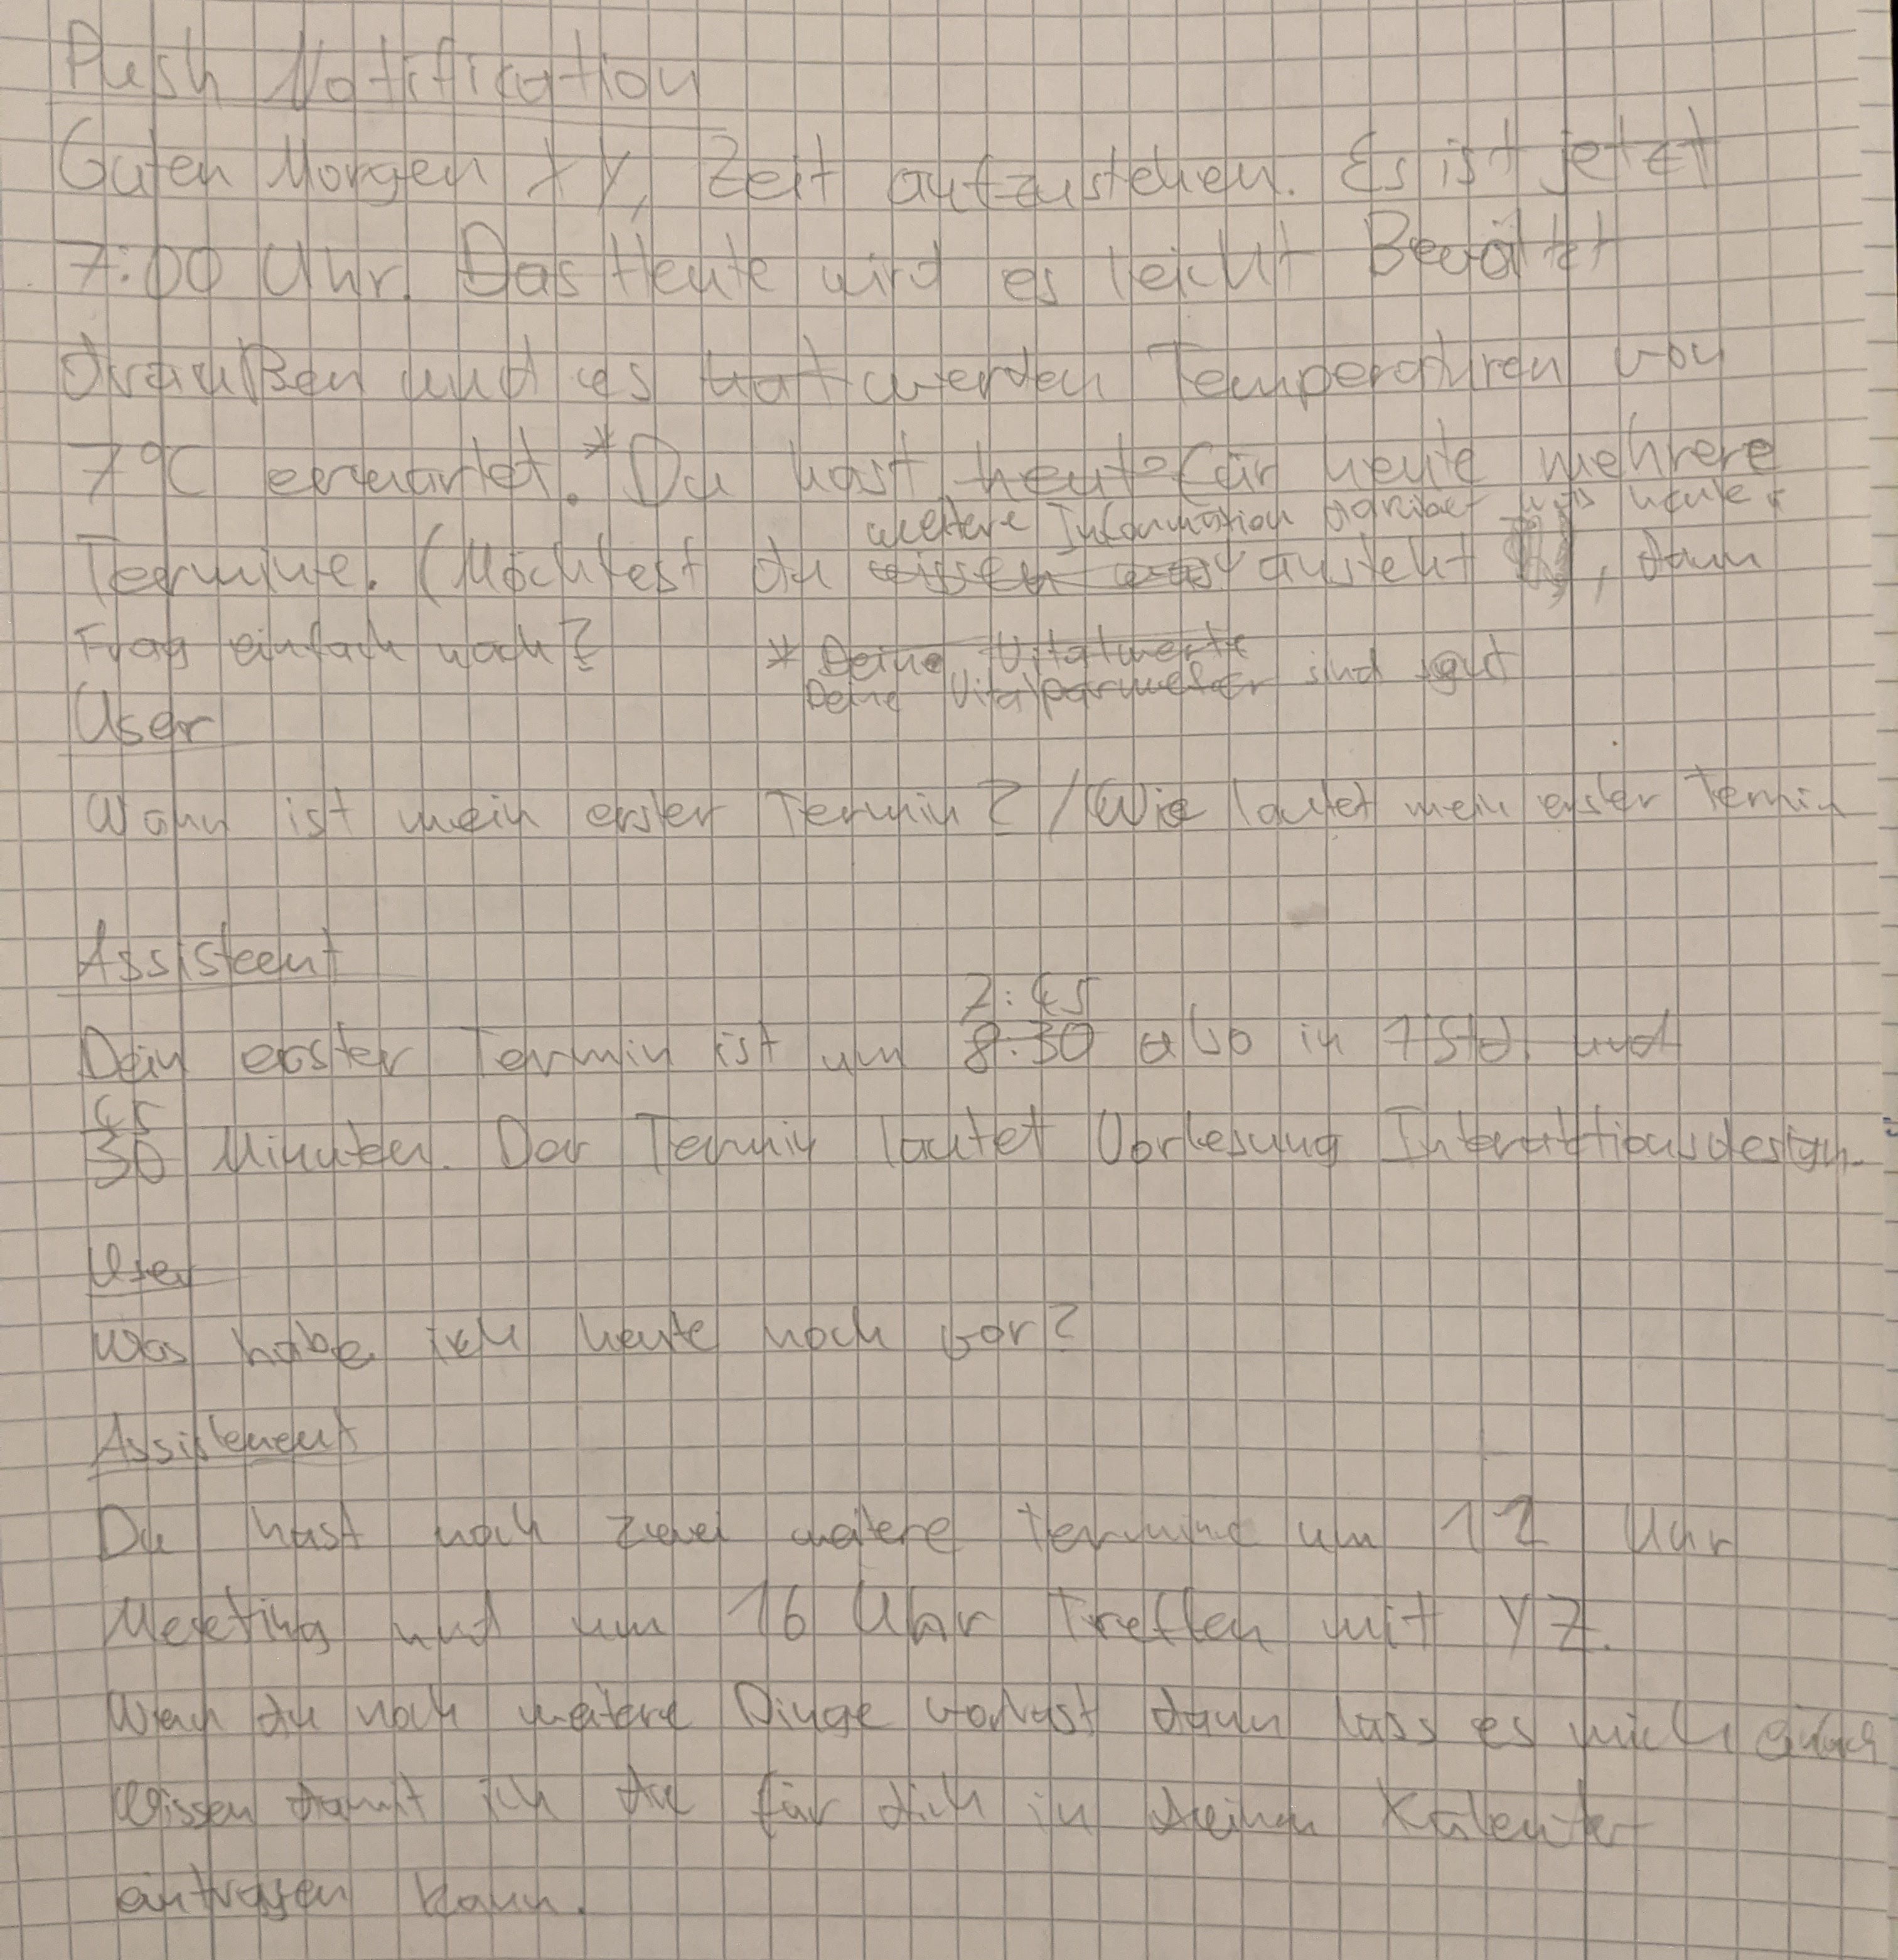 Push Notification
Guten Morgen XY, Zeit aufzustehen. Es ist jetzt
7:00 Uhr. Das Heute wird es leicht Bewölkt
draußen und es hat werden Temperaturen von
7°C erwartet.* Du hast heute für heute mehrere
weitere Information darüber was heute
Termine. (Möchtest du wissen was ansteht, dann
Frag einfach nach?
* Deine Vitalwerte
Deine Vitalparameter sind gut
User
Wann ist mein erster Termin? / Wie lautet mein erster Termin
Assisteent
7:45
Dein erster Termin ist um 8:30 also in 1 Std. und
45
30 Minuten. Der Termin lautet Vorlesung Interaktionsdesign.
User
Was habe ich heute noch vor?
Assistenent
Du hast noch zwei weitere Termine um 12 Uhr
Meeting und um 16 Uhr Treffen mit YZ.
Wenn du noch weitere Dinge vorhast dann lass es mich einfach
Wissen damit ich die für dich in deinen Kalender
eintragen kann.